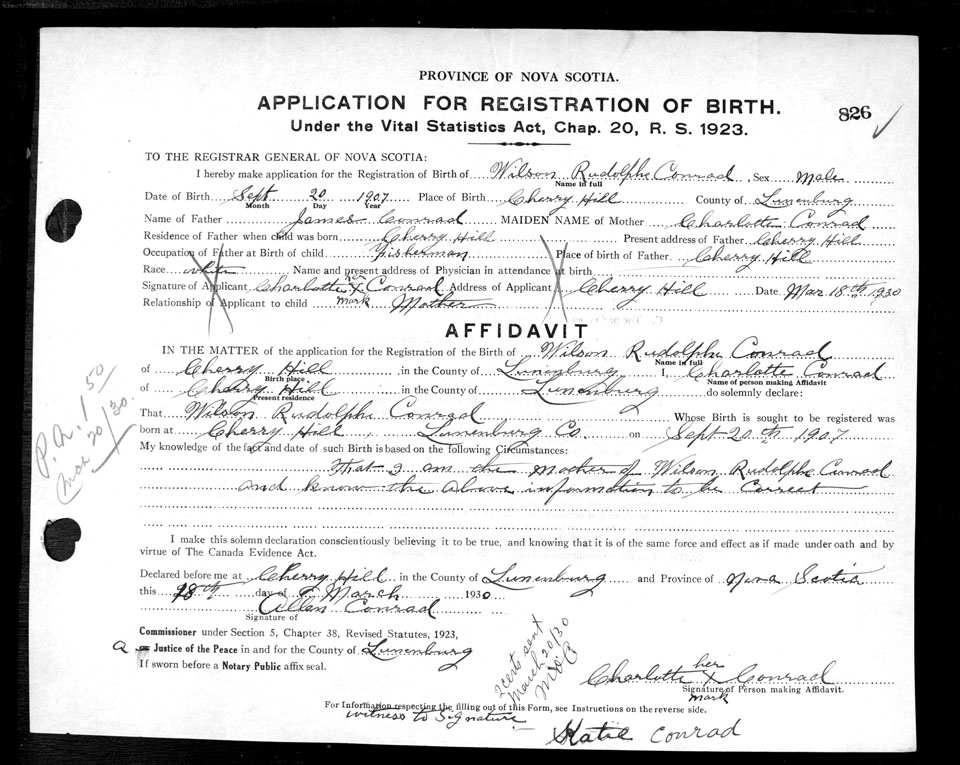 PROVINCE OF NOVA SCOTIA.
APPLICATION FOR REGISTRATION OF BIRTH.
826
Under the Vital Statistics Act, Chap. 20, R. S. 1923.
TO THE REGISTRAR GENERAL OF NOVA SCOTIA:
I hereby make application for the Registration of Birth of Wilson Rudolphe Conrad, Sex Male
Name in full
Date of Birth Sept 20 1907 Place of Birth Cherry Hill County of Lunenburg
Month Day Year
Name of Father James Conrad MAIDEN NAME of Mother Charlotte Conrad
Residence of Father when child was born Cherry Hill Present address of Father Cherry Hill
Occupation of Father at Birth of child Fisherman Place of birth of Father Cherry Hill
Race white Name and present address of Physician in attendance at birth
Signature of Applicant Charlotte her X Conrad Address of Applicant Cherry Hill Date Mar 18th 1930
Relationship of Applicant to child mark Mother
AFFIDAVIT
IN THE MATTER of the application for the Registration of the Birth of Wilson Rudolphe Conrad
Name in full
of Cherry Hill in the County of Lunenburg I, Charlotte Conrad
Birth place Name of person making Affidavit
of Cherry Hill in the County of Lunenburg do solemnly declare:
Present residence
That Wilson Rudolphe Conrad Whose Birth is sought to be registered was
born at Cherry Hill Lunenburg Co. on Sept 20th 1907
My knowledge of the fact and date of such Birth is based on the following Circumstances:
That I am the mother of Wilson Rudolphe Conrad
and know the above information to be Correct
I make this solemn declaration conscientiously believing it to be true, and knowing that it is of the same force and effect as if made under oath and by
virtue of The Canada Evidence Act.
Declared before me at Cherry Hill in the County of Lunenburg and Province of Nova Scotia
this 18th day of March 1930
Allen Conrad
Signature of
Commissioner under Section 5, Chapter 38, Revised Statutes, 1923,
a Justice of the Peace in and for the County of Lunenburg
If sworn before a Notary Public affix seal.
Charlotte her X Conrad
Signature of Person making Affidavit.
mark
For Information respecting the filling out of this Form, see Instructions on the reverse side.
witness to Signature
Katie Conrad
1 50
Mar 20/30.
2 certs sent
March 20/30